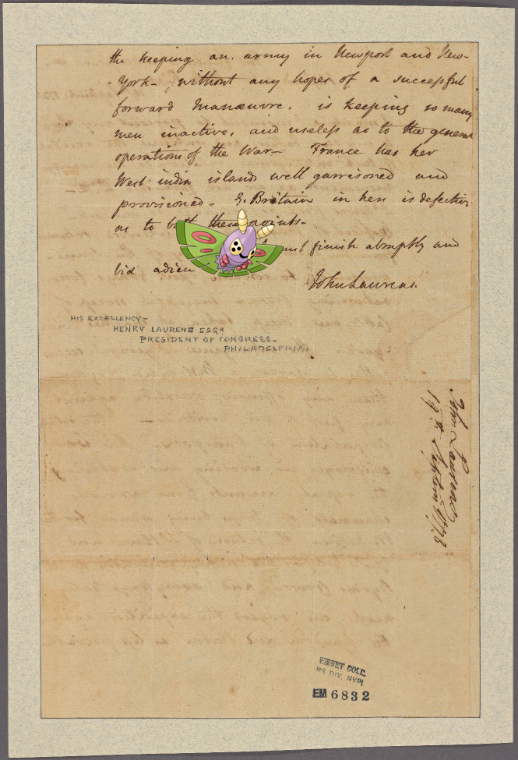 the keeping an army in Newport and New-
York- without any hopes of a successful
forward manœuvre. is keeping so many
men inactive, and useless as to the general
operations of the War- France has her
West india islands well garrisoned and
provisioned- G. Britain in hers is defective
as to both these points-
finish abruptly and
bid adieu
John Laurens.
HIS EXCELLENCY-
HENRY LAURENS ESQR
PRESIDENT OF CONGRESS-
PHILADELPHIA,
John Laurens
1778
EMMET COLL.
MS. DIV. NYPL
EM 6832